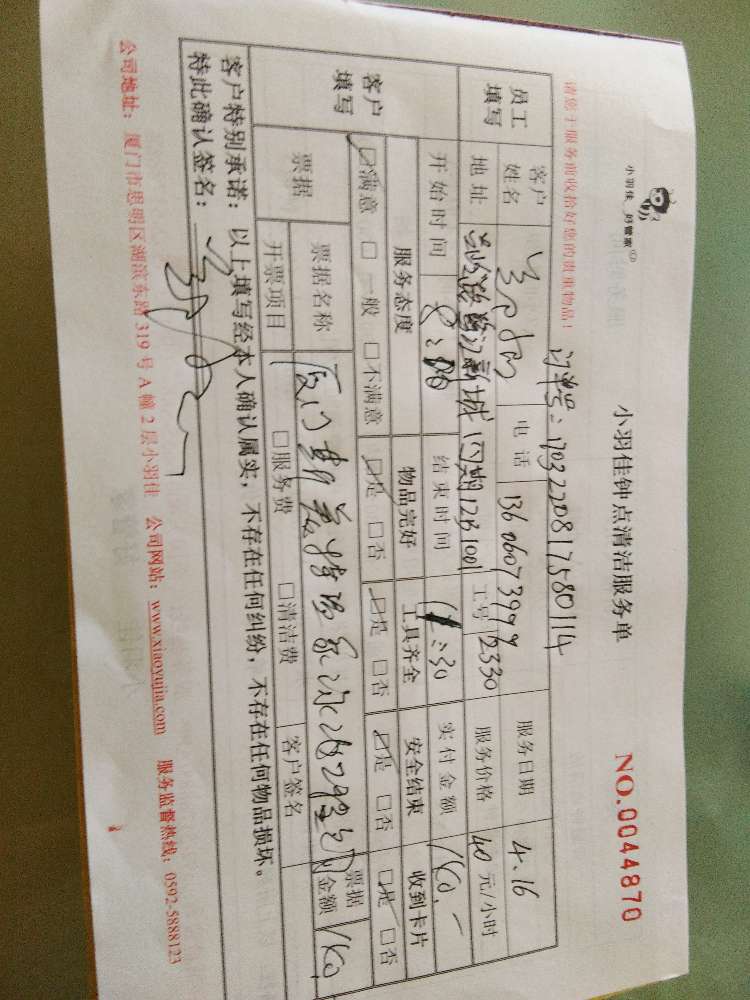 小羽佳 好管家
小羽佳钟点清洁服务单
NO.0044870
订单号:1703220817580114
请您于服务前收拾好您的贵重物品!
员工填写
客户姓名
电话 13606073999
服务日期 4.16
地址 新城 四期12B1001
工号 2330
服务价格 40 元/小时
开始时间 8:00
结束时间 11:30
实付金额 160.-
客户填写
服务态度 物品完好 工具齐全 安全结束 收到卡片
☑满意 □一般 □不满意 ☑是 □否 ☑是 □否 ☑是 □否 ☑是 □否
票据
票据名称 厦门
票据金额 160
开票项目 □服务费 □清洁费 客户签名
客户特别承诺:以上填写经本人确认属实,不存在任何纠纷,不存在任何物品损坏。
特此确认签名:
公司地址:厦门市思明区湖滨东路 319 号 A 幢 2 层小羽佳 公司网站:www.xiaoyujia.com 服务监督热线:0592-5888123